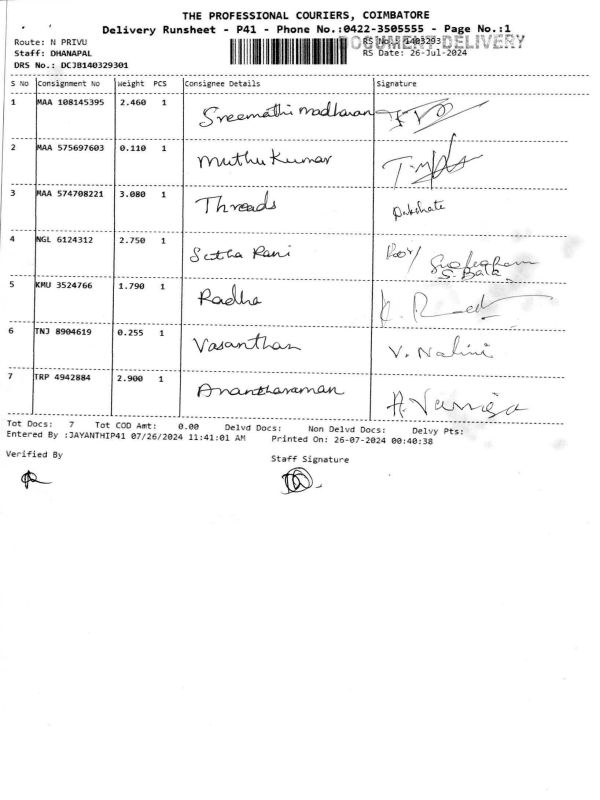 THE PROFESSIONAL COURIERS, COIMBATORE
Delivery Runsheet - P41 - Phone No.:0422-3505555 - Page No.:1
DOCUMENT DELIVERY
Route: N PRIVU RS No.: 1403293
Staff: DHANAPAL RS Date: 26-Jul-2024
DRS No.: DCJB140329301
S No Consignment No Weight PCS Consignee Details Signature
1 MAA 108145395 2.460 1 Sreemathi madhavan
2 MAA 575697603 0.110 1 Muthu Kumar
3 MAA 574708221 3.080 1 Threads
4 NGL 6124312 2.750 1 Seetha Rani S. Bala
5 KMU 3524766 1.790 1 Radha
6 TNJ 8904619 0.255 1 Vasanthan V. Nalini
7 TRP 4942884 2.900 1 Anantharaman
Tot Docs: 7 Tot COD Amt: 0.00 Delvd Docs: Non Delvd Docs: Delvy Pts:
Entered By :JAYANTHIP41 07/26/2024 11:41:01 AM Printed On: 26-07-2024 00:40:38
Verified By Staff Signature